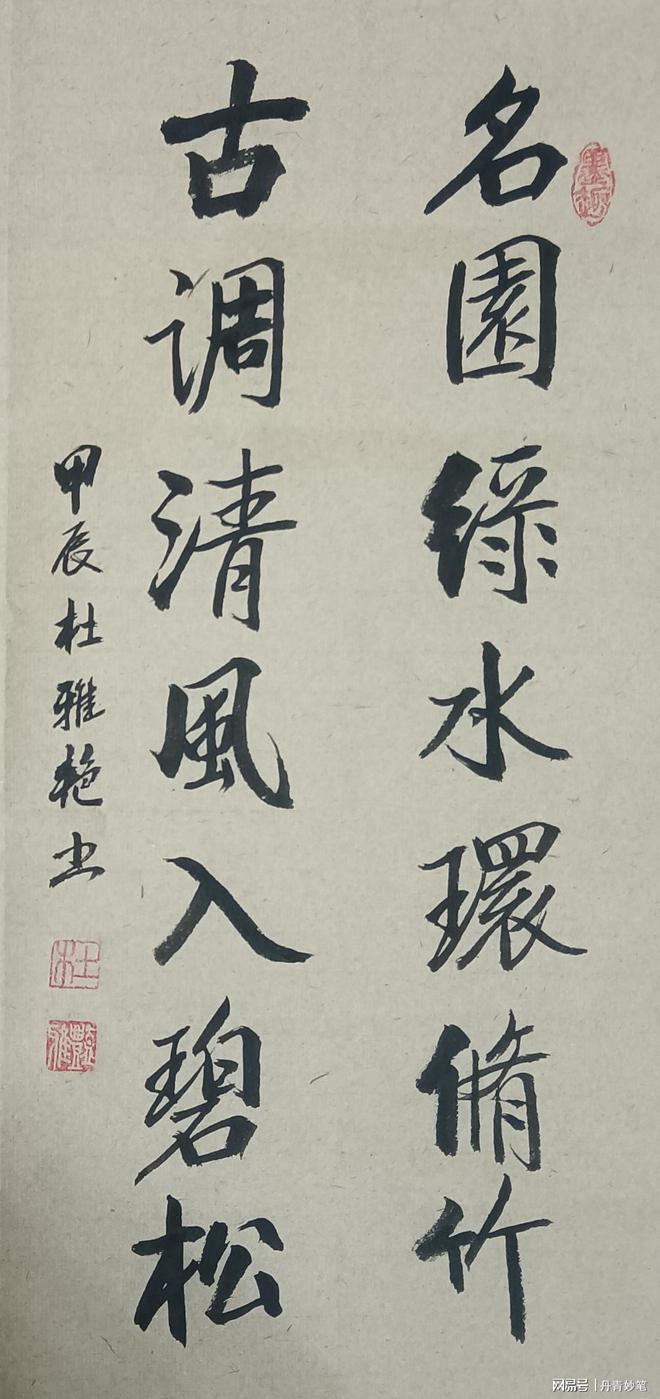 名園綠水環脩竹
古调清風入碧松
甲辰杜雅艳书
墨趣
杜
雅艷
网易号 | 丹青妙笔